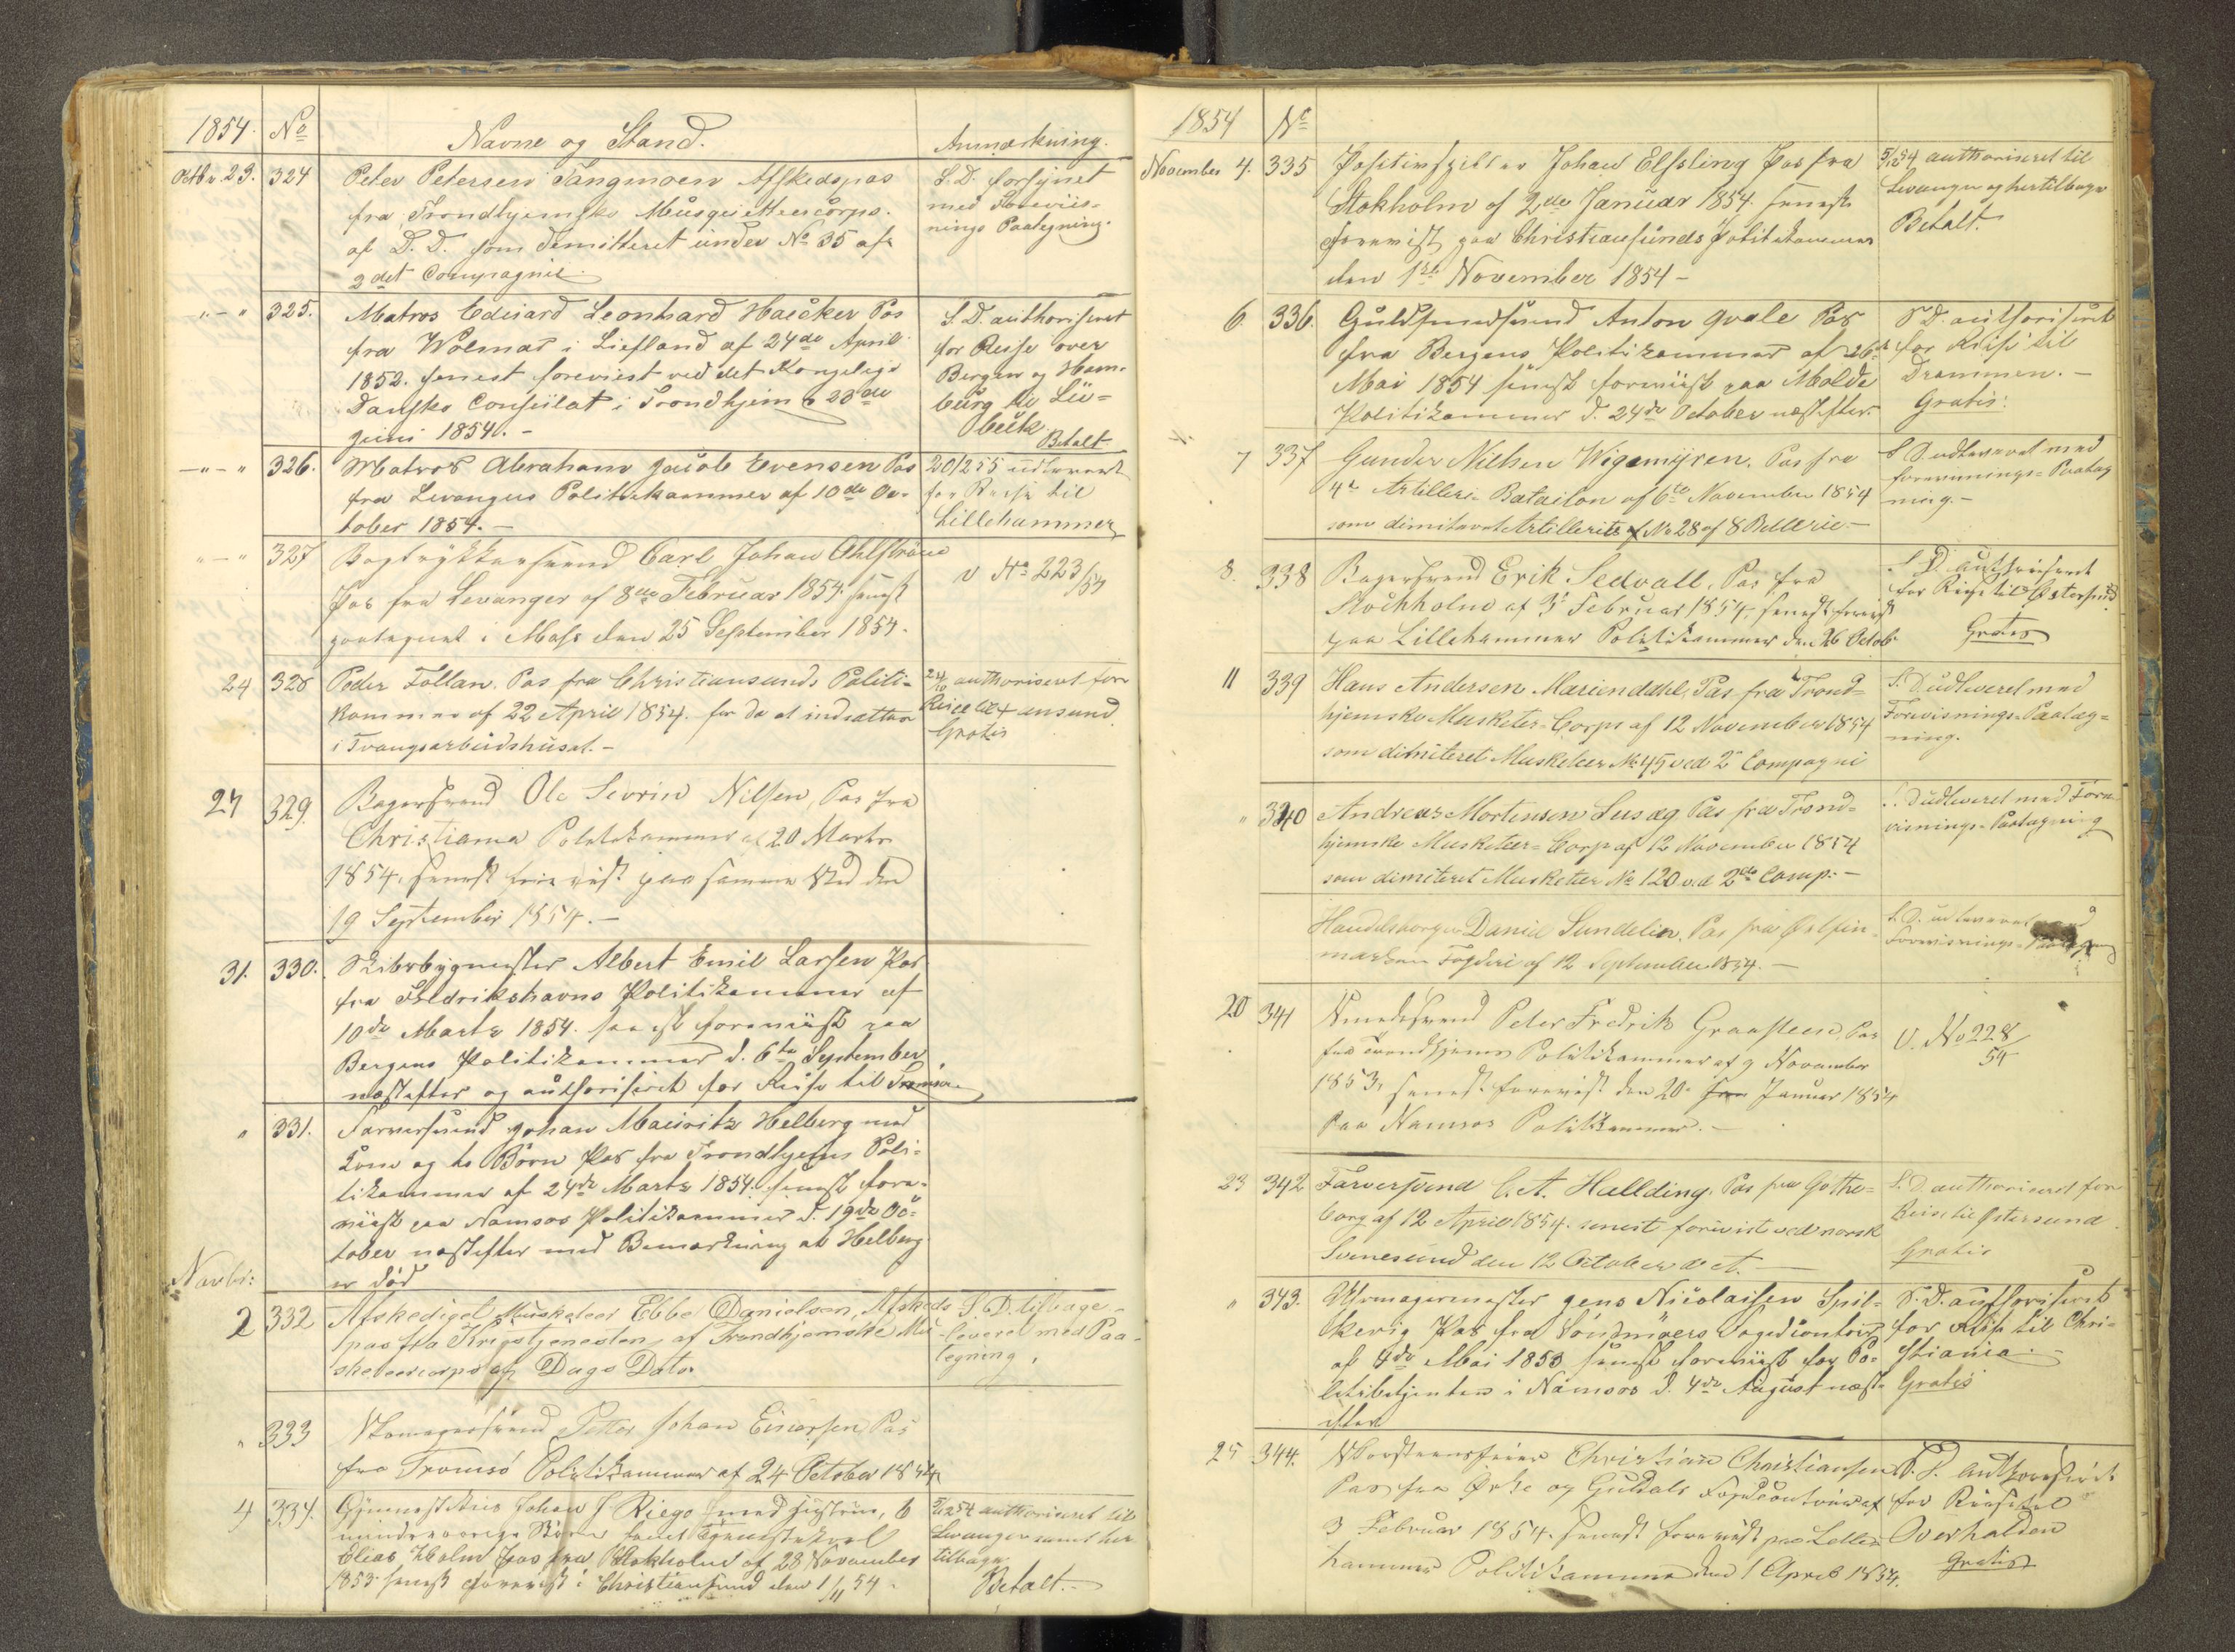 1854. No Navne og Stand. Anmærkning.
Octbr 23. 324 Peter Petersen Tangmoen Afskedspas
fra Trondhjemske Musqvetteercorps
af D. D. som dimitteret under No 35 af
2det Compagnie.
S. D. forsynet
med Foreviis-
nings Paategning.
" - " 325. Matros Eduard Leonhard Haecker Pas
fra Wolmar i Liefland af 24de April
1852. senest foreviist ved det Kongelige
Danske Consulat i Trondhjem 23de
Juni 1854. -
S. D. authoriseret
for Reise over
Bergen og Ham-
burg til Lü-
beck
Betalt
- " - " 326. Matros Abraham Jacob Evensen Pas
fra Levanger Politikammer af 10de Oc-
tober 1854. -
20/2 55 udleveret
for Reise til
Lillehammer
" - " 327 Bogtrykkersvend Carl Johan Ohlström
Pas fra Levanger af 8de Februar 1854. senest
paategnet i Moss den 25 September 1854.
v No 223/54
24 328 Peder Follan. Pas fra Christiansunds Politi-
kammer af 22 April 1854. for da at indsættes
i Tvangsarbeidshuset. -
24/10 authoriseret for
Reise til Xansund.
Gratis
27 329. Bagersvend Ole Sevrin Nilsen, Pas fra
Christiania Politikammer af 20 Marts
1854, senest forevist paa samme Sted den
19 September 1854. -
31. 330. Skibsbygmester Albert Emil Larsen Pas
fra Fredrikshavns Politikammer af
10de Marts 1854. senest foreviist paa
Bergens Politikammer d. 6te September
næstefter og authoriseret for Reise til Tromsø.
" 331. Farversvend Johan Mauritz Helberg med
Kone og to Børn Pas fra Trondhjems Poli-
tikammer af 24de Marts 1854. senest fore-
viist paa Namsos Politikammer d. 19de Oc-
tober næstefter med Bemærkning at Helberg
er død
Novbr:
2 332 Afskediget Musketeer Ebbe Danielsen, Afskeds
pas fra Krigstjenesten af Trondhjemske Mu-
sketeercorps af Dags Dato
S. D. tilbage-
leveret med Paa-
tegning.
" 333 Skomagersvend Petter Johan Einersen Pas
fra Tromsø Politikammer af 24 October 1854
4 334. Johan Riego med Hustru, 6
mindreaarige Børn samt
Elias Holm Pas fra Stokholm af 28 November
1853 senest forevist i Christiansund den 1/11 54 -
5/12 54 authoriseret til
Levanger samt her
tilbage
Betalt. -
1854 No
November 4. 335 Positivspiller Johan Elfsling Pas fra
Stokholm af 2de Januar 1854. senest
forevist paa Christiansunds Politikammer
den 1ste November 1854 -
5/12 54 authoriseret til
Levanger og hertilbage
Betalt.
6 336. Guldsmedsvend Anton Qvale Pas
fra Bergens Politikammer af 26de
Mai 1854 senest foreviist paa Molde
Politikammer d. 24de October næstefter.
S. D. authoriseret
for Reise til
Drammen. -
Gratis.
7 337 Gunder Nielsen Wigemyren. Pas fra
4de Artilleri-Batailon af 6te November 1854
som dimiteret Artillerist af No 28 af 8 Batterie -
S D. udleveret med
forevisnings-Paateg
ning. -
8. 338 Bagersvend Erik Sedvall, Pas fra
Stockholm af 3 Februar 1854, senest forevist
paa Lillehammer Politikammer den 26 Octob.
S. D. authoriseret
for Reise til Østersund
Gratis
11 339 Hans Andersen Mariendahl, Pas fra Trond-
hjemske Musketer-Corps af 12 November 1854
som dimiteret Musketeer No 45 ved 2det Compagni
S. D. udleveret med
Forevisnings-Paateg-
ning.
" 340 Andreas Mortensen Susæg Pas fra Trond-
hjemske Musketeer-Corps af 12 November 1854
som dimiteret Musketeer No 120 ved 2de Comp: -
S. D. udleveret med Fore
visnings-Paategning
Handelsborger Daniel Sundelin. Pas fra Østfin-
markens Fogderi af 12 September 1854. -
S. D. udleveret med
Forevisnings-Paategning
20 341 Smedesvend Peter Fredrik Graasteen, Pas
fra Trondhjems Politikammer af 9 November
1853, senest forevist den 20. Januar 1854
paa Namsos Politikammer. -
v. No 228/54
23 342 Farversvend C. A. Hallding. Pas fra Gothe-
borg af 12 April 1854. senest forevist ved norsk
Svinesund den 12 October d. A. -
S. D. authoriseret for
Reise til Østersund.
Gratis
" 343. Uhrmagermester Jens Nicolaisen Spil-
kevig Pas fra Søndmøers Fogedcontoir
af 4de Mai 1853 senest foreviist for Po-
litibetjenten i Namsos d. 4de August næst-
efter
S. D. authoriseret
for Reise til Chri-
stiania.
Gratis
25 344. Skorsteensfeier Christian Christiansen
Pas fra Ørke og Guldals Fogdcontoir af
3 Februar 1854. senest forevist paa Lille-
hammer Politikammer den 1 April 1854.
S. D. authoriseret
for Reise til
Overhalden
Gratis